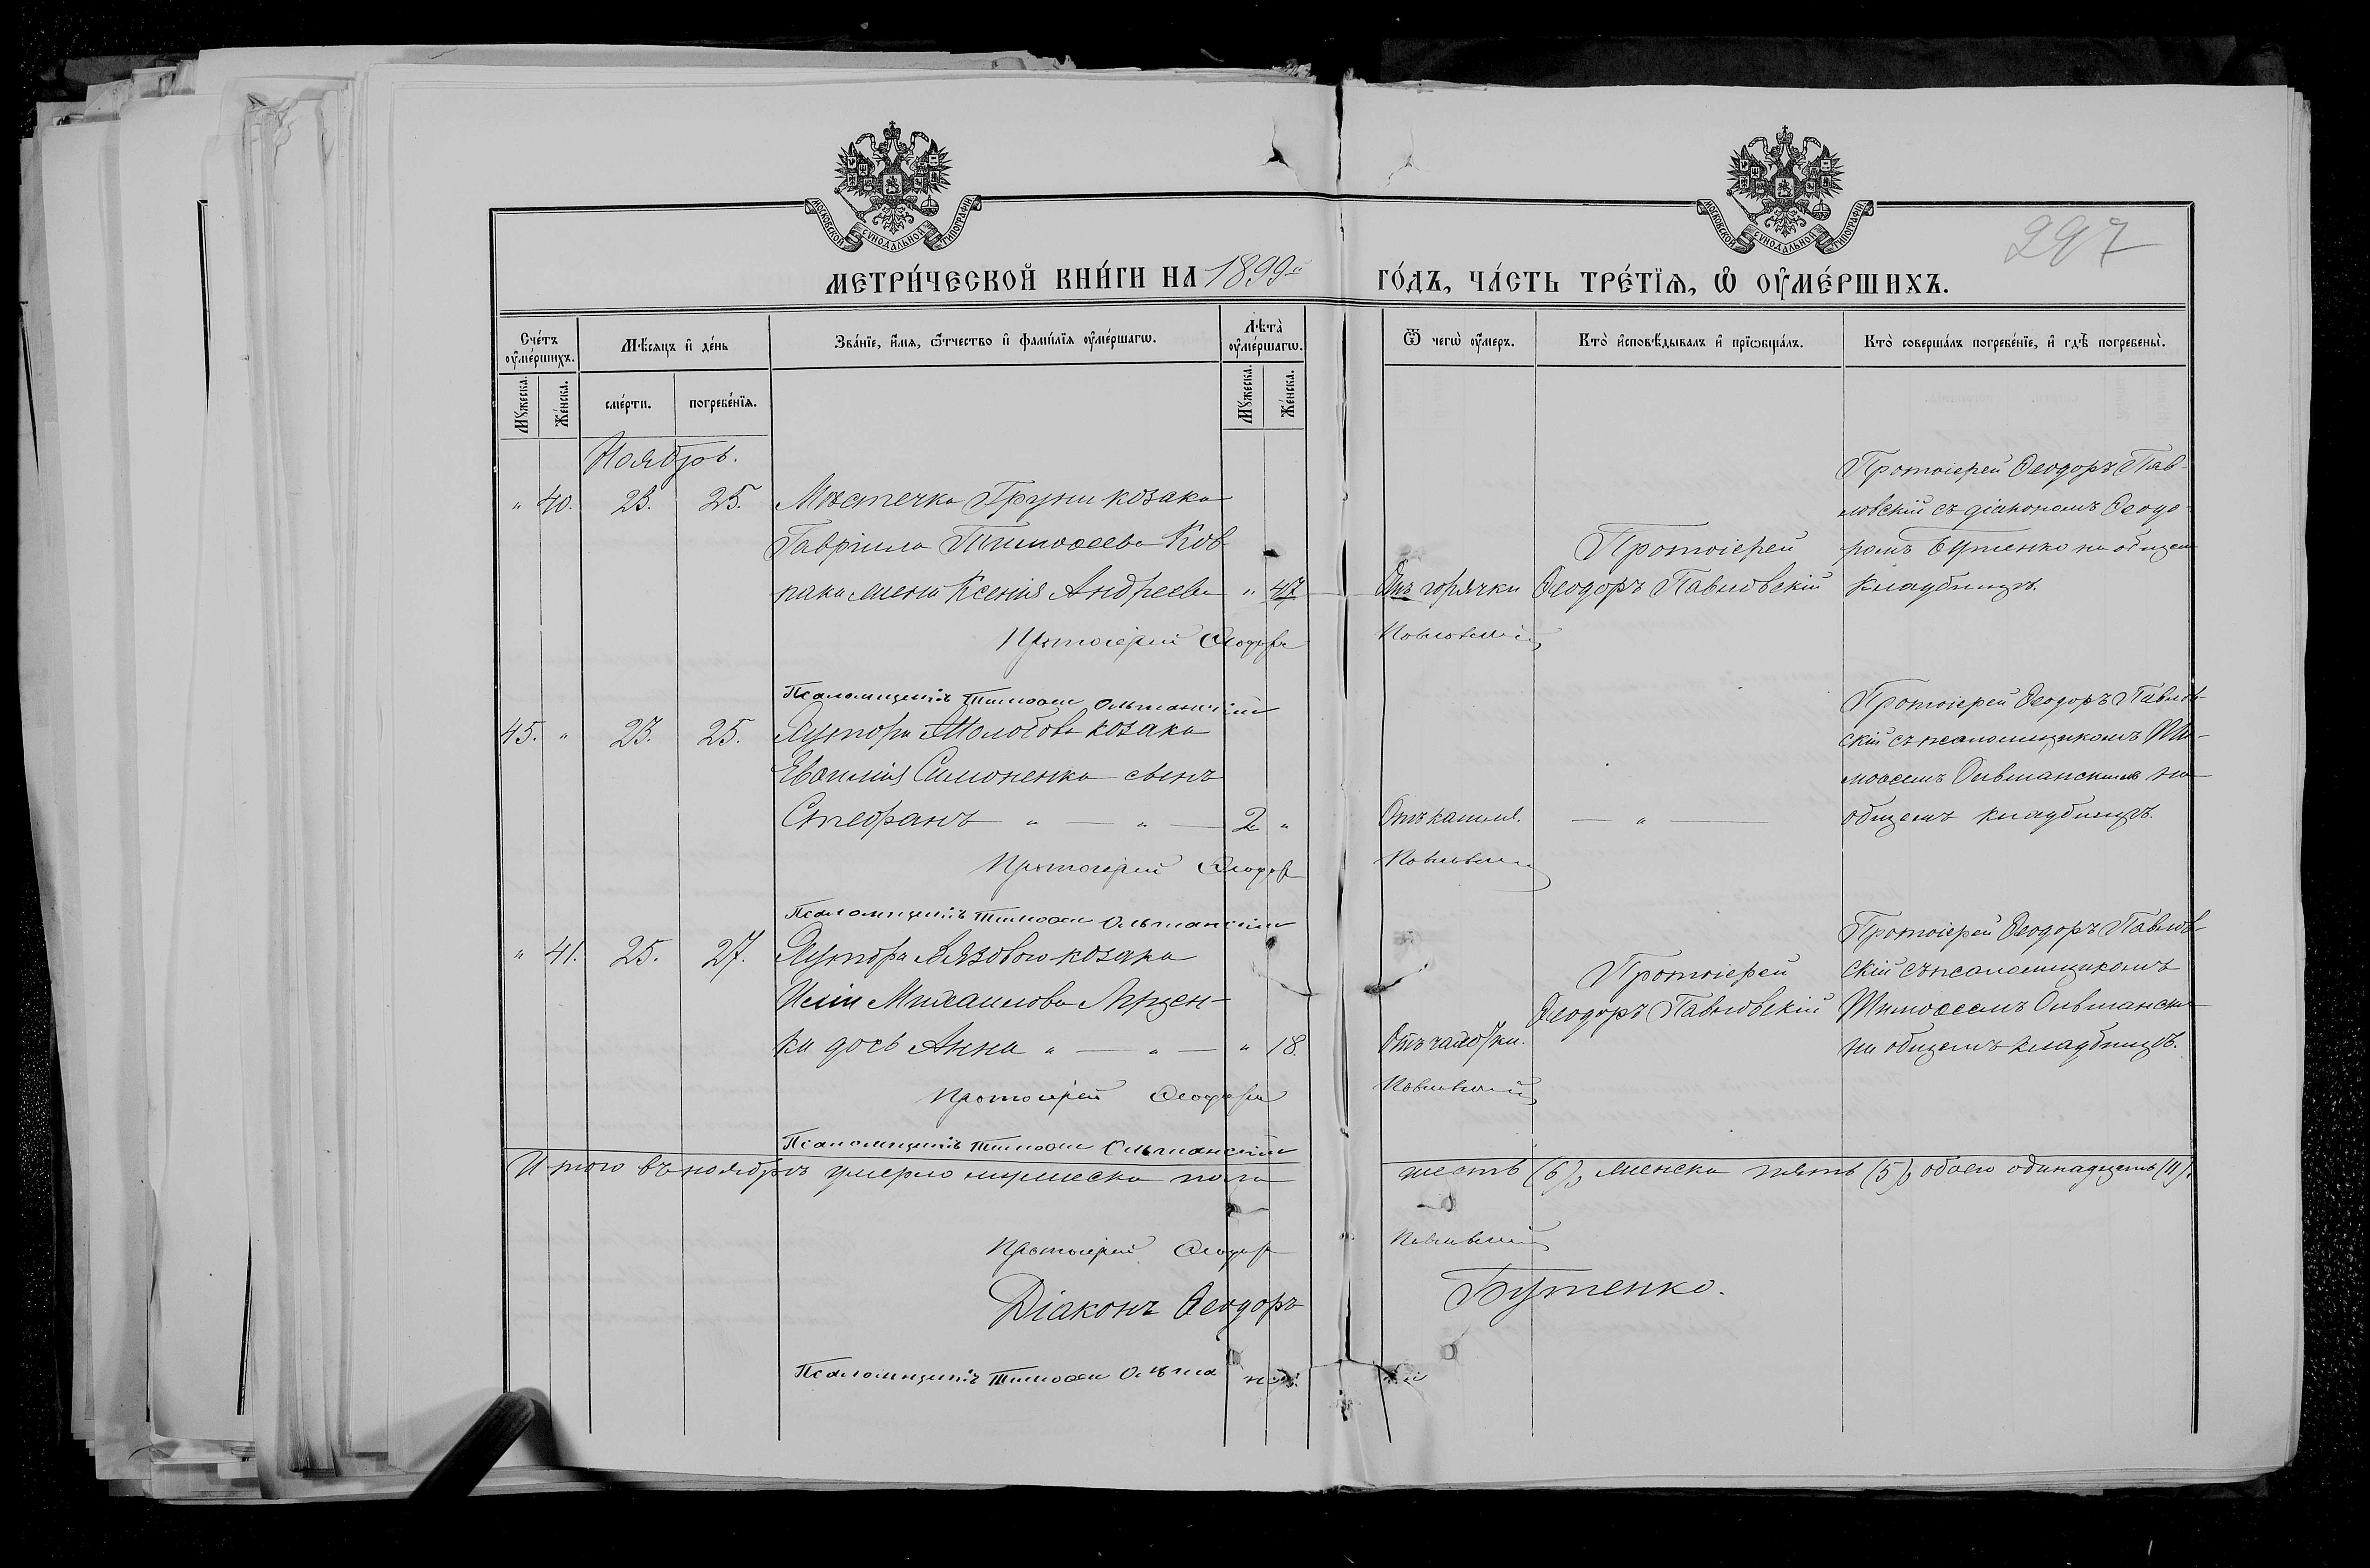 МОСКОВСКОЙ СѴНОДАЛЬНОЙ ТИПОГРАФІИ
МОСКОВСКОЙ СѴНОДАЛЬНОЙ ТИПОГРАФІИ
297
МЕТРИ́ЧЕСКОЙ КНИ́ГИ НА 1899й ГО́ДЪ, ЧА́СТЬ ТРЕ́ТЇѦ, Ѡ ОУ҆МЕ́РШИХЪ.
Сче́тъ оу҆ме́ршихъ.
Мѣ́сяцъ и҆ де́нь
Зва́нїе, и҆́мѧ, ѻ҆́тчество и҆ фами́лїѧ оу҆ме́ршагѡ.
Лѣта̀ оу҆ме́ршагѡ.
Ѿ чегѡ̀ оу҆́меръ.
Кто̀ и҆сповѣ́дывалъ и҆ прїѡбща́лъ.
Кто̀ соверша́лъ погребе́нїе, и҆ гдѣ̀ погребены̀.
Мꙋ́жеска.
Же́нска.
сме́рти.
погребе́нїѧ.
Мꙋ́жеска.
Же́нска.
Ноябрь.
" 40. 23. 25. Мѣстечка Груни козака
Гавріила Тимоѳеева Ков
пака жена Ксенія Андреева " 47
Отъ горячки
Протоіерей
Ѳеодоръ Павловскій
Протоіерей Ѳеодоръ Пав-
ловскій съ діакономъ Ѳеодо-
ромъ Бутенко на общем
кладбищѣ.
Протоіерей Ѳеодоръ Павловскій
Псаломщикъ Тимоѳей Ольшанскій
45. " 23. 25. Хутора козака
Евѳимія Симоненка сынъ
Стефанъ " — " — 2 "
Отъ кашля.
— " —
Протоіерей Ѳеодоръ Павлов-
скій съ псаломщикомъ Ти-
моѳеемъ Ольшанскимъ на
общемъ кладбищѣ.
Протоіерей Ѳеодоръ Павловскій
Псаломщикъ Тимоѳей Ольшанскій
" 41. 25. 27. Хутора Вязового козака
Иліи Михаилова Луцен-
ка дочь Анна " — " — " 18.
Отъ чахотки.
Протоіерей
Ѳеодоръ Павловскій
Протоіерей Ѳеодоръ Павлов-
скій съ псаломщикомъ
Тимоѳеемъ Ольшански
на общемъ кладбищѣ.
Протоіерей Ѳеодоръ Павловскій
Псаломщикъ Тимоѳей Ольшанскій
Итого въ ноябрѣ умерло мужеска пола шесть (6), женска пять (5), обоего одинадцать (11).
Протоіерей Ѳеодоръ Павловскій
Діаконъ Ѳеодоръ Бутенко.
Псаломщикъ Тимоѳей Ольшанскій